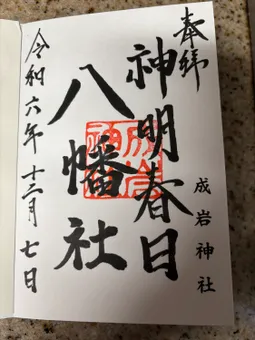 奉拝
神明春日
八幡社
成岩神社
令和六年十二月七日
成岩
神社